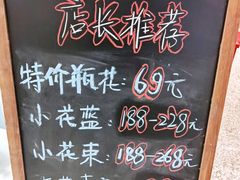 店长推荐
特价瓶花:69元
小花蓝:188-228元
小花束:188-268元